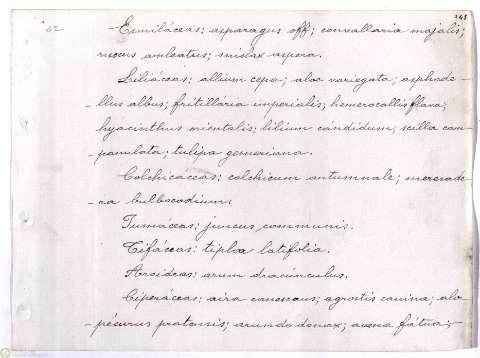 248
62
Esmiláceas: asparagus off; convallaria majalis;
ruscus auleatus; smilax aspera.
Liliáceas: allium cepa; aloe variegata; asphode-
-llus albus; fritillária imperialis; hemerocallis flava;
hyacinthus orientalis; lilium cándidum; scilla cam-
-panulata; tulipa gesneriana.
Colchicáceas: colchicum autumnale; merendera
-ra bulbocodium.
Juncáceas: juncus communis.
Tifáceas: tipha latifolia.
Aroideas: arum dracúnculus.
Ciperáceas: aira canescens; agrostis canina; alo-
-pécurus pratensis; arundo donax; avena fátua;